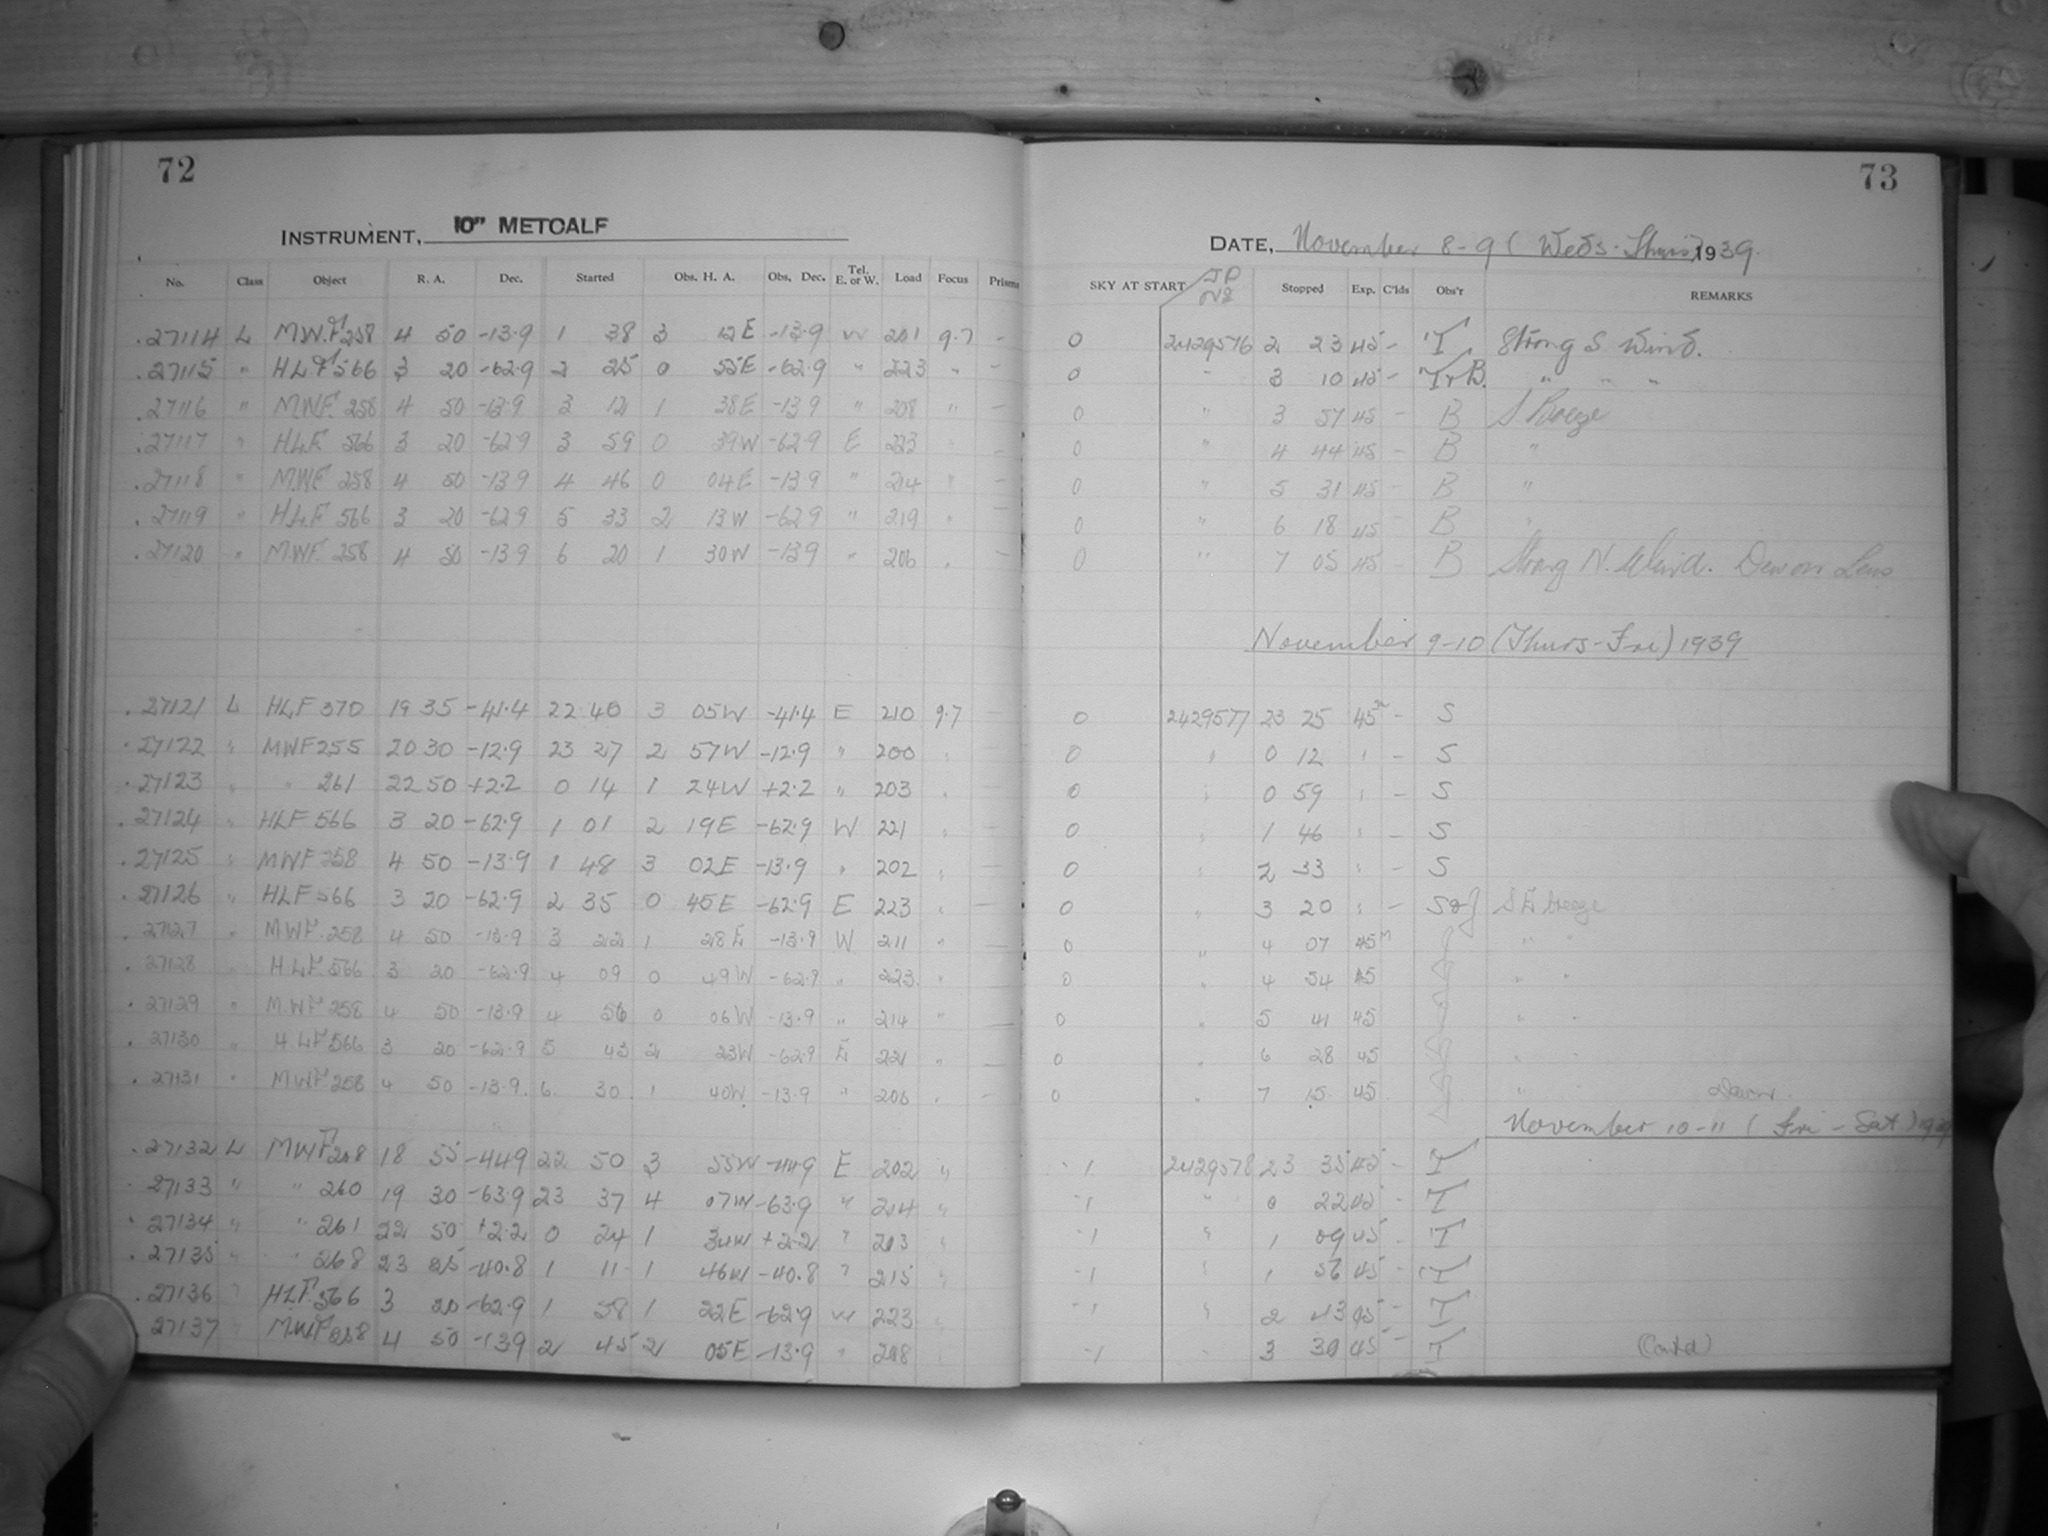 72
73
INSTRUMENT, 10" METCALF
DATE, November 8-9 (Weds-Thurs) 1939.
No. Class Object R. A. Dec. Started Obs. H. A. Obs. Dec. Tel. E. or W. Load Focus Prisms SKY AT START JD Stopped Exp. C'lds Obs'r REMARKS
27114 L MWF 258 4 50 -13.9 1 38 3 12E -13.9 W 201 9.7 - 0 2429576 2 23 45 - T. Strong S wind.
27115 " HLF 566 3 20 -62.9 2 25 0 55E -62.9 " 223 " - 0 " 3 10 45 - T+B. " " "
27116 " MWF 258 4 50 -13.9 3 12 1 38E -13.9 " 208 " - 0 " 3 57 45 - B S Breeze
27117 " HLF 566 3 20 -62.9 3 59 0 39W -62.9 E 223 " - 0 " 4 44 45 - B "
27118 " MWF 258 4 50 -13.9 4 46 0 04E -13.9 " 214 " - 0 " 5 31 45 - B "
27119 " HLF 566 3 20 -62.9 5 33 2 13W -62.9 " 219 " - 0 " 6 18 45 - B "
27120 " MWF 258 4 50 -13.9 6 20 1 30W -13.9 " 206 " - 0 " 7 05 45 - B Strong N. Wind. Dew on Lens
November 9-10 (Thurs-Fri) 1939
27121 L HLF 370 19 35 -41.4 22 40 3 05W -41.4 E 210 9.7 - 0 2429577 23 25 45m - S
27122 " MWF 255 20 30 -12.9 23 27 2 57W -12.9 " 200 " - 0 " 0 12 " - S
27123 " " 261 22 50 +2.2 0 14 1 24W +2.2 " 203 " - 0 " 0 59 " - S
27124 " HLF 566 3 20 -62.9 1 01 2 19E -62.9 W 221 " - 0 " 1 46 " - S
27125 " MWF 258 4 50 -13.9 1 48 3 02E -13.9 " 202 " - 0 " 2 33 " - S
27126 " HLF 566 3 20 -62.9 2 35 0 45E -62.9 E 223 " - 0 " 3 20 " - S&J S E breeze
27127 " MWF 258 4 50 -13.9 3 22 1 28E -13.9 W 211 " 0 " 4 07 45m " "
27128 " HLF 566 3 20 -62.9 4 09 0 49W -62.9 " 223 " 0 " 4 54 45 " "
27129 " MWF 258 4 50 -13.9 4 56 0 06W -13.9 " 214 " - 0 " 5 41 45 " "
27130 " HLF 566 3 20 -62.9 5 43 2 23W -62.9 E 221 " - 0 " 6 28 45 " "
27131 " MWF 258 4 50 -13.9 6 30 1 40W -13.9 " 206 " - 0 " 7 15 45 " Dawn.
November 10-11 (Fri-Sat) 1939
27132 L MWF 208 18 55 -44.9 22 50 3 55W -44.9 E 202 " -1 2429578 23 35 45 - T
27133 " " 260 19 30 -63.9 23 37 4 07W -63.9 " 214 " -1 " 0 22 45 - T
27134 " " 261 22 50 +2.2 0 24 1 34W +2.2 " 203 " -1 " 1 09 45 - T
27135 " " 268 23 25 -40.8 1 11 1 46W -40.8 " 215 " -1 " 1 56 45 - T
27136 " HLF 566 3 20 -62.9 1 58 1 22E -62.9 W 223 " -1 " 2 43 45 - T
27137 " MWF 258 4 50 -13.9 2 45 2 05E -13.9 " 208 -1 " 3 30 45 - T (Cont'd)